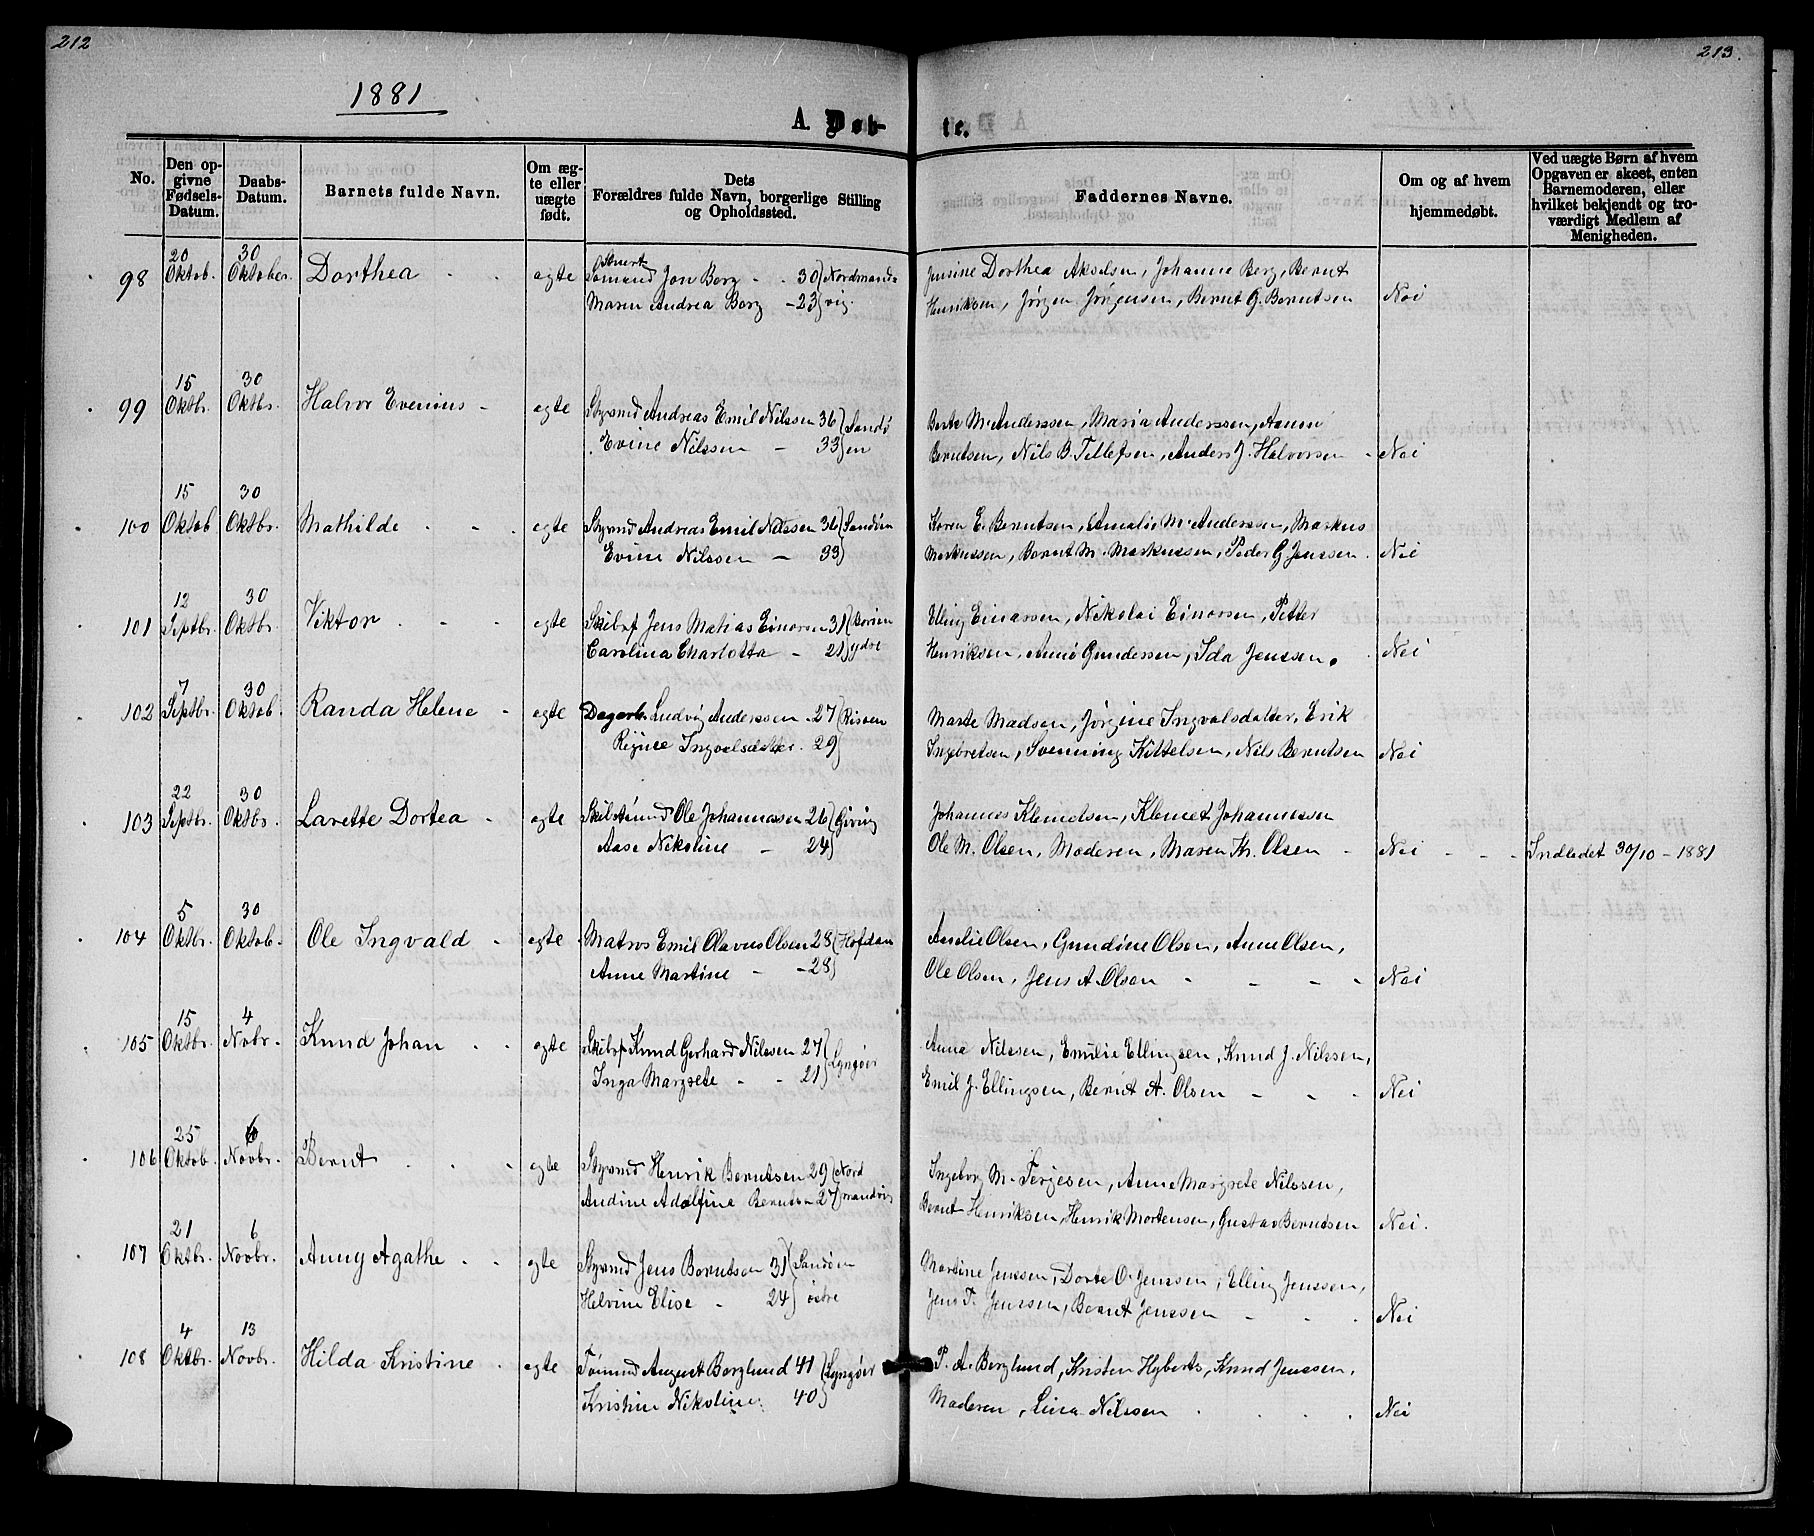 212
213.
1881
A. Døb-
te.
No.
Den op-
givne
Fødsels-
Datum.
Daabs-
Datum.
Barnets fulde Navn.
Om æg-
te eller
uægte
født.
Dets
Forældres fulde Navn, borgerlige Stilling
og Opholdssted.
Faddernes Navne.
Om og af hvem
hjemmedøbt.
Ved uægte Børn af hvem
Opgaven er skeet, enten
Barnemoderen, eller
hvilket bekjendt og tro-
værdigt Medlem af
Menigheden.
98 20 Oktob. 30 Oktober Dorthea - - ægte Sømand Jon Berg - - 30 Nordmands-
Maren Andrea Berg - 23 vig.
Jensine Dorthea Akselsen, Johanne Berg, Bernt
Henriksen, Jørgen Jørgensen, Bernt G. Berntsen Nei
99 15 Oktbr. 30 Oktbr. Halvor Evenius - ægte Styrmd Andreas Emil Nilssen 36 Sandø
Evine Nilssen - 33 en
Berte M. Anderssen, Maria Anderssen, Aanen
Berntsen, Nils B. Tellefsen, Anders J. Halvorsen - Nei
100 15 Oktob 30 Oktbr. Mathilde - - ægte Styrmd Andreas Emil Nilssen 36 Sandøen
Evine Nilssen - 33
Karen E. Berntsen, Amalie M. Anderssen, Markus
Markussen, Bernt M. Markussen, Peder G. Jenssen. Nei
101 12 Septbr. 30 Oktbr. Viktor - - - ægte Skibsf Jens Matias Einarsen 31 Borøen
Carolina Charlotta - 21 ydre
Elling Einarsen, Nikolai Einarsen, Petter
Henriksen, Anne Gundersen, Ida Jenssen. Nei
102 7 Septbr. 30 Oktob. Randa Helene - ægte Dagarb. Ludvig Anderssen - 27 Risøen
Regine Ingvalsdatter. 29
Marte Madsen, Jørgine Ingvalsdatter, Erik
Ingebretsen, Svenning Kittelsen, Nils Berntsen Nei
103 22 Septbr. 30 Oktbr. Larette Dortea - ægte Skibstømmd Ole Johannessen 26 Giving
Aase Nikoline - 24
Johannes Klemetsen, Klemet Johannessen
Ole M. Olsen, Moderen, Maren Kr. Olsen - Nei - - Indledet 30/10 - 1881
104 5 Oktbr. 30 Oktob. Ole Ingvald - ægte Matros Emil Olavus Olsen 28 Hofdan
Anne Martine - - 28
Amelie Olsen, Gundine Olsen, Anne Olsen,
Ole Olsen, Jens A. Olsen - - - - Nei
105 15 Oktbr. 4 Novbr. Knud Johan - - ægte Skibsf Knud Gerhard Nilssen 27 Lyngøer
Inga Margrete - - 21
Anna Nilssen, Emilie Ellingsen, Knud J. Nilssen,
Emil J. Ellingsen, Bernt A. Olsen - - - Nei
106 25 Oktob. 6 Novbr. Bernt - - - ægte Styrmd Henrik Berntsen 29 Nord
Andine Adolfine Berntsen 27 mandvig
Ingeborg M. Terjesen, Anne Margrete Nilssen,
Bernt Henriksen, Henrik Mortensen, Gustav Berntsen Nei.
107 21 Oktbr. 6 Novbr. Anny Agathe - - ægte Styrmd Jens Berntsen 31 Sandøen
Helvine Elise - 24 østre
Martine Jenssen, Dorte O. Jenssen, Elling Jenssen,
Jens T. Jenssen, Bernt Jenssen - - - Nei
108 4 Oktbr. 13 Novbr. Hilda Kristine - ægte Tømmd August Berglund 41 Lyngøer
Kristine Nikoline. 40
P. A. Berglund, Kristen Hyberts, Knud Jenssen,
Moderen, Lina Nilssen - - - - Nei